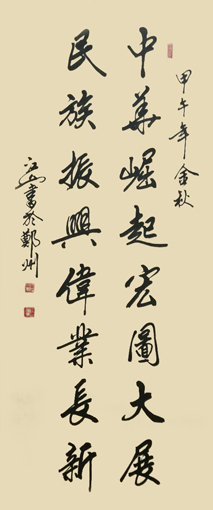 甲午年金秋
中華崛起宏圖大展
民族振興偉業長新
江山書於鄭州